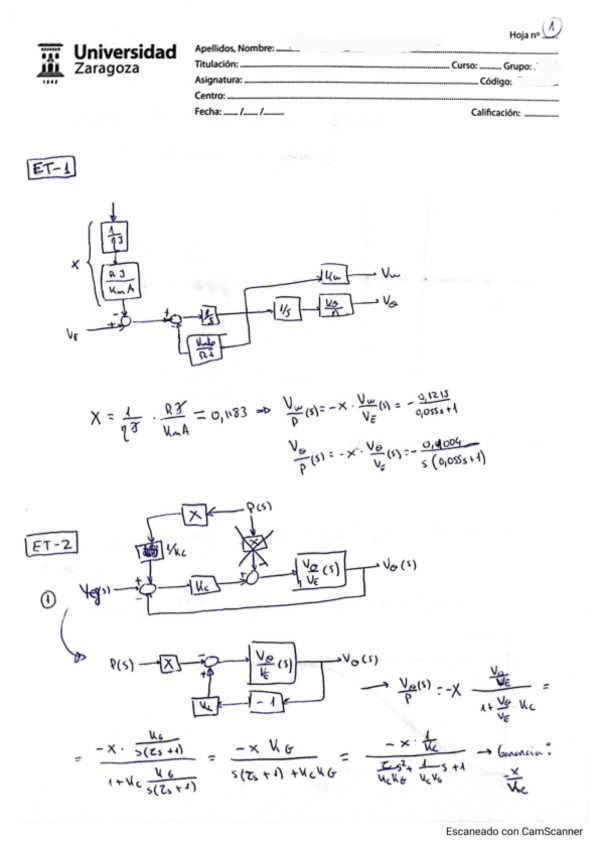 Hoja nº 1
Universidad
Zaragoza
1542
Apellidos, Nombre:
Titulación: Curso: Grupo:
Asignatura: Código:
Centro:
Fecha: / / Calificación:
ET-1
1/ηJ
X
RJ/KmA
Kw Vw
VE - + + - 1/s 1/s Kθ/n Vθ
X = 1/ηJ · RJ/KmA = 0,1183 ⇒ Vw/P(s) = -x · Vw/VE(s) = - 0,1213/0,055s+1
Vθ/P(s) = -x · Vθ/VE(s) = - /s(0,055s+1)
ET-2
X P(s)
1/Kc X
+ - Kc + - Vθ/VE(s) Vθ(s)
1
P(s) X - + Vθ/VE(s) Vθ(s)
Kc -1
→ Vθ(s)/P = -X Vθ/VE / 1+Vθ/VE·Kc =
= -x · KG/s(τs+1) / 1+Kc KG/s(τs+1) = -x KG / s(τs+1)+KcKG = -x · 1/Kc / τs²/KcKG + 1/KcKG s+1 → Ganancia:
-x/Kc
Escaneado con CamScanner